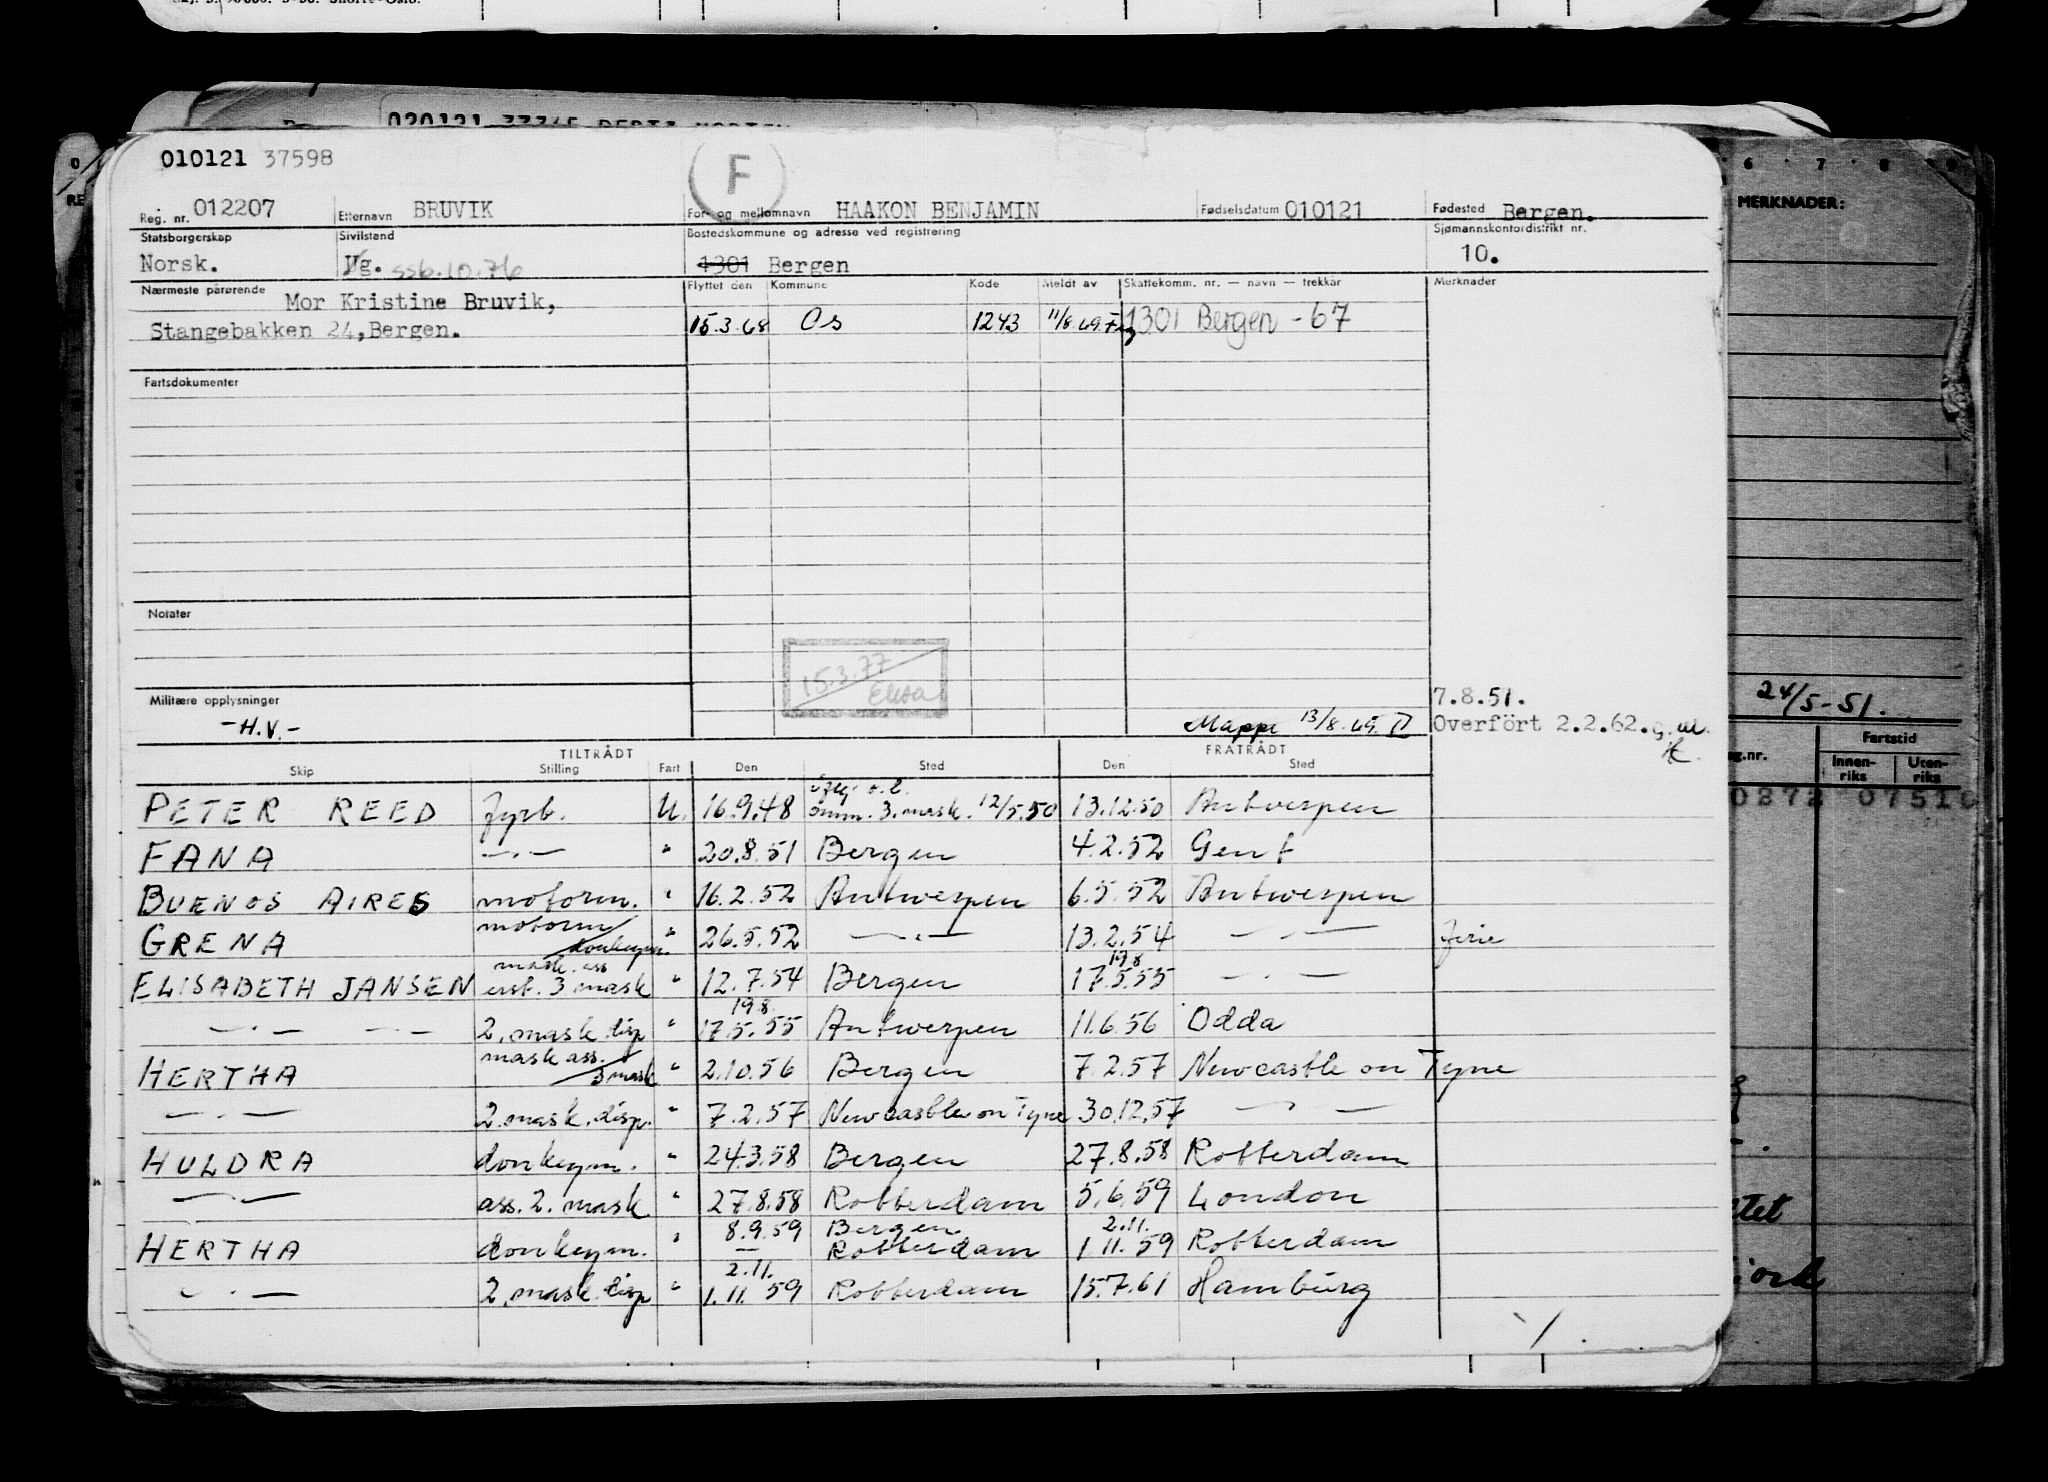 010121 37598
F
Reg. nr. 012207 Etternavn BRUVIK For- og mellomnavn HAAKON BENJAMIN Fødselsdatum 010121 Fødested Bergen.
Statsborgerskap Sivilstand Bostedskommune og adresse ved registrering Sjømannskontordistrikt nr.
Norsk. Ug. ssb.10.76 1301 Bergen 10.
Nærmeste pårørende Flyttet den Kommune Kode Meldt av Skattekomm. nr. — navn — trekkår Merknader
Mor Kristine Bruvik,
Stangebakken 24, Bergen. 15.3.68 Os 1243 11/8.69. 1301 Bergen - 67
Fartsdokumenter
Notater
15.3.77
Militære opplysninger 7.8.51.
-H.V.- Mappe 13/8.69. Overfört 2.2.62.
TILTRÅDT FRATRÅDT
Skip Stilling Fart Den Sted Den Sted
PETER REED fyrb. U. 16.9.48 omm. 3. mask. 12/5.50 13.12.50 Antwerpen
FANA —·— " 20.8.51 Bergen 4.2.52 Gent
BUENOS AIRES motorm. " 16.2.52 Antwerpen 6.5.52 Antwerpen
GRENA motorm/donkeym. " 26.5.52 —·— 13.2.54 —·— ferie
ELISABETH JANSEN mask. ass 3 mask " 12.7.54 Bergen 19.8 17.5.55 —·—
—·— —·— 2. mask. disp " 19.8. 17.5.55 Antwerpen 11.6.56 Odda
HERTHA mask ass./3 mask " 2.10.56 Bergen 7.2.57 Newcastle on Tyne
—·— 2. mask. disp. " 7.2.57 Newcastle on Tyne 30.12.57 —·—
HULDRA donkeym. " 24.3.58 Bergen 27.8.58 Rotterdam
—·— ass. 2. mask " 27.8.58 Rotterdam 5.6.59 London
HERTHA donkeym. " 8.9.59 — Bergen Rotterdam 2.11. 1.11.59 Rotterdam
—·— 2. mask. disp " 2.11. 1.11.59 Rotterdam 15.7.61 Hamburg
6 7 8 9
MERKNADER:
24/5-51.
Fartstid
Innen-riks Uten-riks